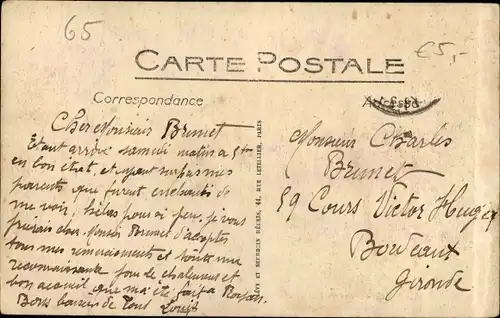 65
€5,-
CARTE POSTALE
Correspondance
Adresse
Cher Monsieur Brunet
Etant arrivé samedi matin a 5h
en bon état, et ayant surpris mes
parents que furent enchantés de
me voir, hélas pour si peu, je vous
prierais cher Monsieur Brunet d'accepter
tous mes remerciements et toute ma
reconnaissance pour le chaleureux et
bon accueil que m'a été fait a
Bons baisers de Tous Louis
44, RUE LETELLIER, PARIS
Monsieur Charles
Brunet
59 Cours Victor Hugo
Bordeaux
Gironde